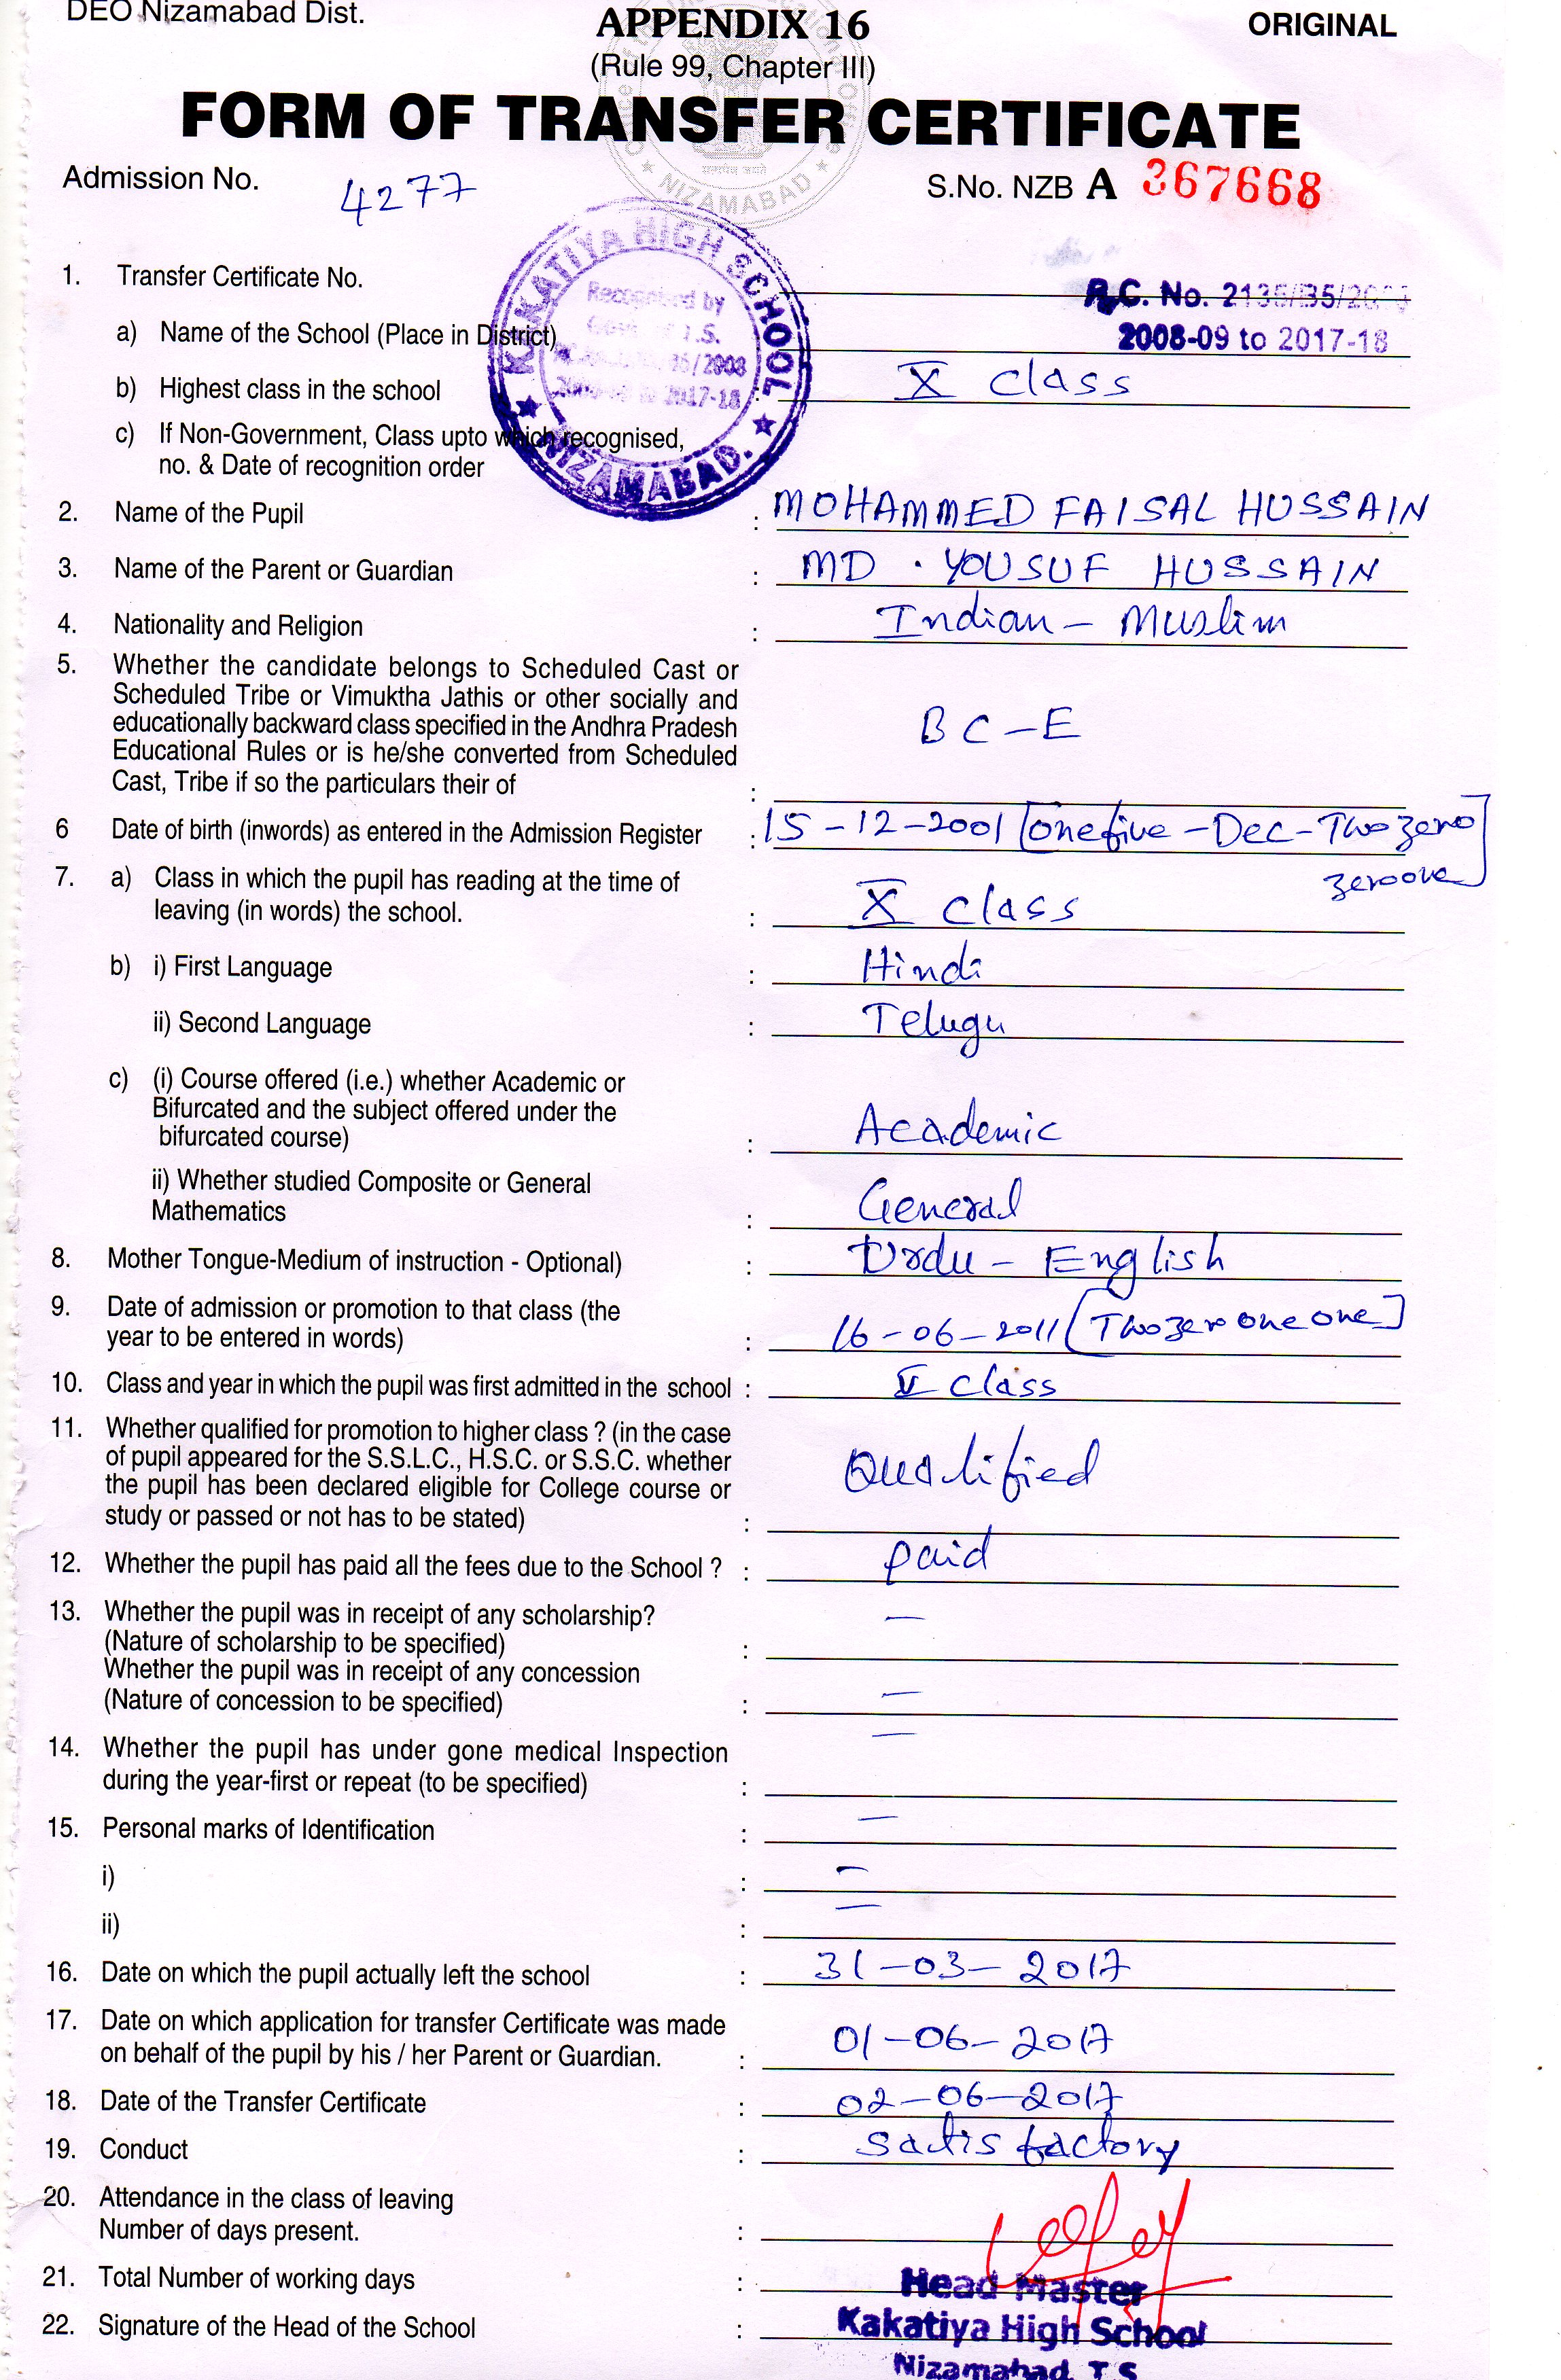 DEO Nizamabad Dist.
APPENDIX 16
ORIGINAL
(Rule 99, Chapter III)
FORM OF TRANSFER CERTIFICATE
NIZAMABAD
Admission No. 4277
S.No. NZB A 367668
KAKATIYA HIGH SCHOOL
Recognised by
2017-18
NIZAMABAD.
1. Transfer Certificate No.
R.C. No. 2135/B5/
2008-09 to 2017-18
a) Name of the School (Place in District)
b) Highest class in the school X class
c) If Non-Government, Class upto which recognised,
no. & Date of recognition order
2. Name of the Pupil : MOHAMMED FAISAL HUSSAIN
3. Name of the Parent or Guardian : MD . YOUSUF HUSSAIN
4. Nationality and Religion : Indian - Muslim
5. Whether the candidate belongs to Scheduled Cast or
Scheduled Tribe or Vimuktha Jathis or other socially and
educationally backward class specified in the Andhra Pradesh
Educational Rules or is he/she converted from Scheduled
Cast, Tribe if so the particulars their of : BC-E
6 Date of birth (inwords) as entered in the Admission Register : 15-12-2001 [onefive-Dec-Two zero
zeroone]
7. a) Class in which the pupil has reading at the time of
leaving (in words) the school. : X class
b) i) First Language : Hindi
ii) Second Language : Telugu
c) (i) Course offered (i.e.) whether Academic or
Bifurcated and the subject offered under the
bifurcated course) : Academic
ii) Whether studied Composite or General
Mathematics : General
8. Mother Tongue-Medium of instruction - Optional) : Urdu - English
9. Date of admission or promotion to that class (the
year to be entered in words) : 16-06-2011 [Two zero one one]
10. Class and year in which the pupil was first admitted in the school : V class
11. Whether qualified for promotion to higher class ? (in the case
of pupil appeared for the S.S.L.C., H.S.C. or S.S.C. whether
the pupil has been declared eligible for College course or
study or passed or not has to be stated) : Qualified
12. Whether the pupil has paid all the fees due to the School ? : paid
13. Whether the pupil was in receipt of any scholarship? —
(Nature of scholarship to be specified) :
Whether the pupil was in receipt of any concession
(Nature of concession to be specified) : —
14. Whether the pupil has under gone medical Inspection —
during the year-first or repeat (to be specified) :
15. Personal marks of Identification : —
i) : —
ii) : —
16. Date on which the pupil actually left the school : 31-03-2017
17. Date on which application for transfer Certificate was made
on behalf of the pupil by his / her Parent or Guardian. : 01-06-2017
18. Date of the Transfer Certificate : 02-06-2017
19. Conduct : satisfactory
20. Attendance in the class of leaving
Number of days present. :
21. Total Number of working days :
Head Master
22. Signature of the Head of the School : Kakatiya High School
Nizamabad, T.S